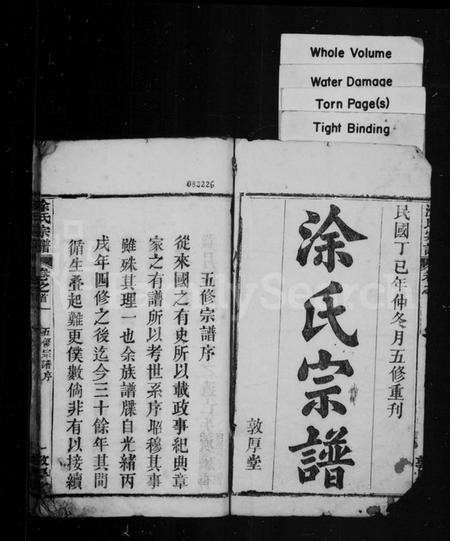 Whole Volume
Water Damage
Torn Page(s)
Tight Binding
民國丁巳年仲冬月五修重刊
涂氏宗譜
敦厚堂
082226
五修宗譜序
從來國之有史所以載政事紀典章
家之有譜所以考世系序昭穆其事
雖殊其理一也余族譜牒自光緒丙
戌年四修之後迄今三十餘年其間
循生疊起難更僕數倘非有以接續
涂氏宗譜
卷之首
五修宗譜序
一
敦厚